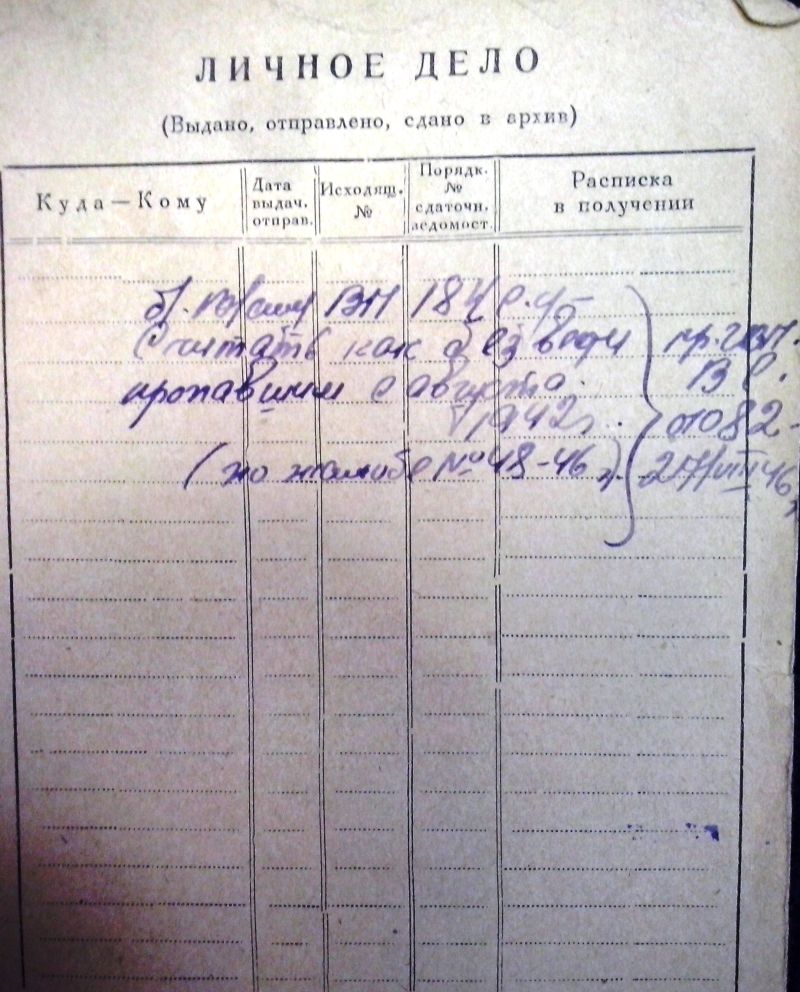 ЛИЧНОЕ ДЕЛО
(Выдано, отправлено, сдано в архив)
Куда — Кому
Дата
выдач.
отправ.
Исходящ.
№
Порядк.
№
сдаточн.
ведомост.
Расписка
в получении
184
Считать как без вести
пропавшим с августа
1942г.
(по жалобе № 48-46г.)